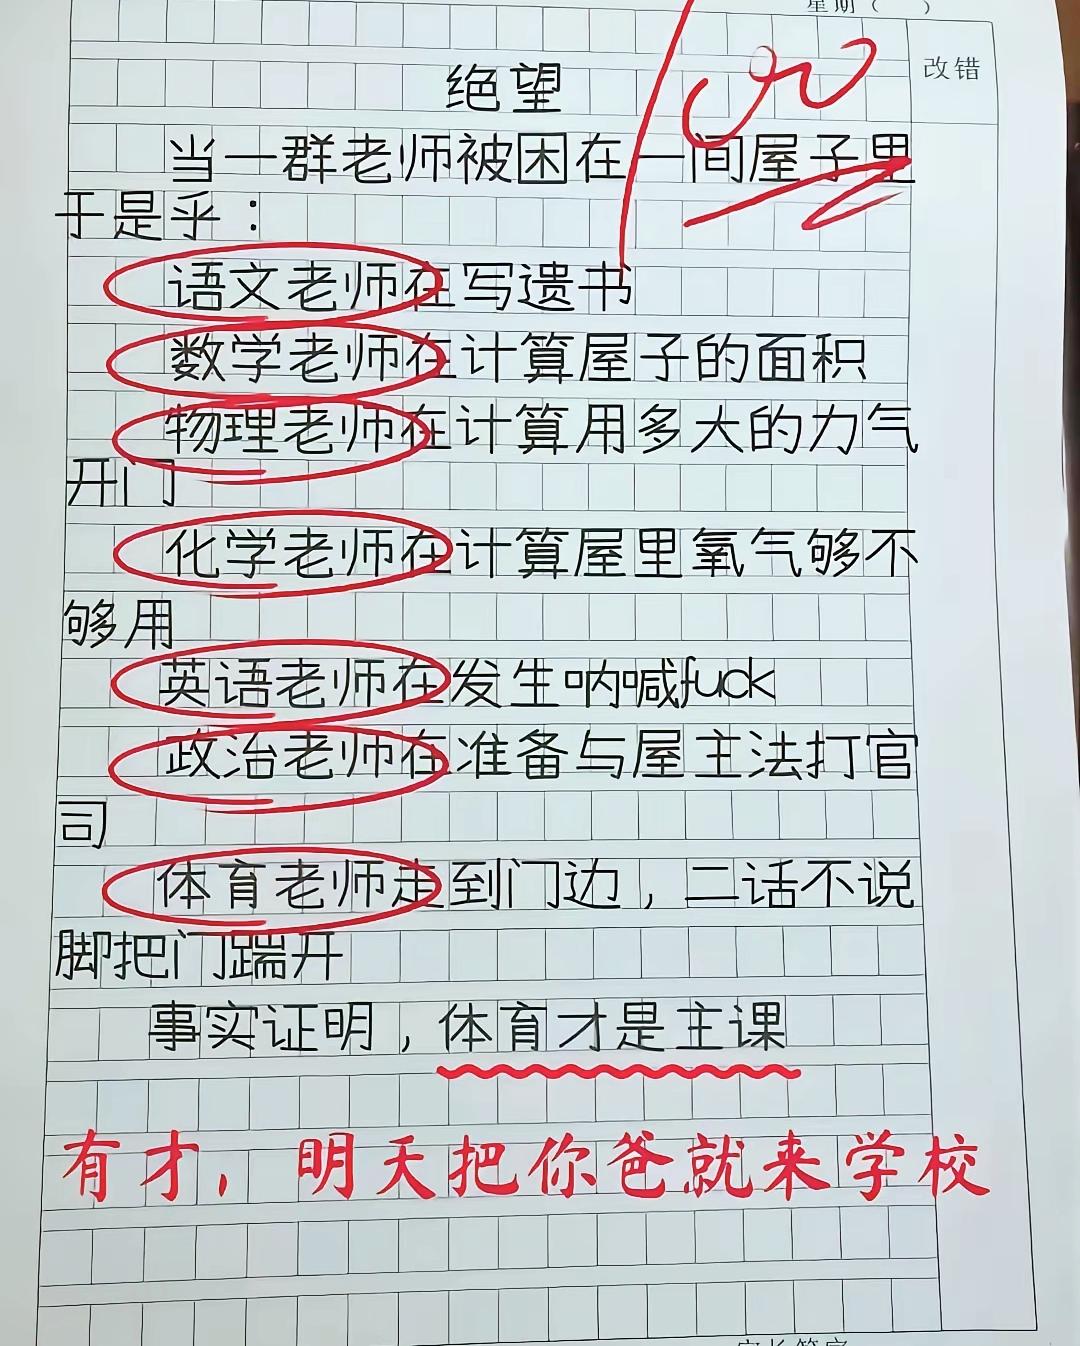 星期（ ）
改错
100
绝望
当一群老师被困在一间屋子里
于是乎：
语文老师在写遗书
数学老师在计算屋子的面积
物理老师在计算用多大的力气
开门
化学老师在计算屋里氧气够不
够用
英语老师在发生呐喊fuck
政治老师在准备与屋主法打官
司
体育老师走到门边，二话不说
脚把门踹开
事实证明，体育才是主课
有才，明天把你爸就来学校